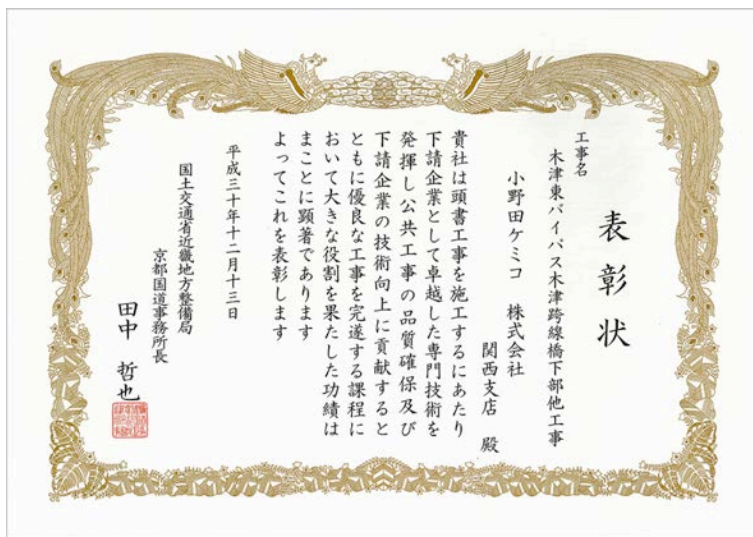 表彰状
工事名
木津東バイパス木津跨線橋下部他工事
小野田ケミコ 株式会社
関西支店 殿
貴社は頭書工事を施工するにあたり
下請企業として卓越した専門技術を
発揮し公共工事の品質確保及び
下請企業の技術向上に貢献すると
ともに優良な工事を完遂する課程に
おいて大きな役割を果たした功績は
まことに顕著であります
よってこれを表彰します
平成三十年十二月十三日
国土交通省近畿地方整備局
京都国道事務所長
田中 哲也